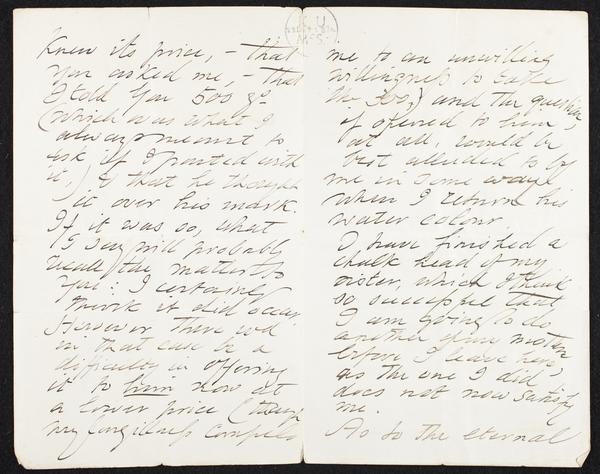 knew its price, – that
you asked me, – that
I told you 500 gs
(which was what I
always meant to
ask if I parted with
it,) & that he thought
it over his mark.
If it was so, what
I say will probably
recall the matter to
you: I certainly
think it did occur.
However there wd
in that case be a
difficulty in offering
it to him now at
a lower price (though
my forgiveness compels
me to an unwilling
willingness to take
the 300,) and the question,
if offered to him
at all, would be
best alluded to by
me in some way
when I return his
water colour
I have finished a
chalk head of my
sister, which I think
so successful that
I am going to do
another of my mother
before I leave here,
as the one I did
does not now satisfy
me.
As to the eternal